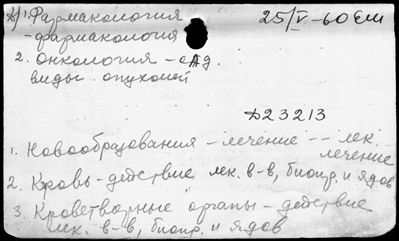 1. Фармакология 25/V-60
-фармакология
2. Онкология - отд.
виды опухолей
Д23213
1. Новообразования - лечение -- лек.
лечение
2. Кровь - действие лек. в-в, биопр. и ядов
3. Кроветворные органы - действие
лек. в-в, биопр. и ядов